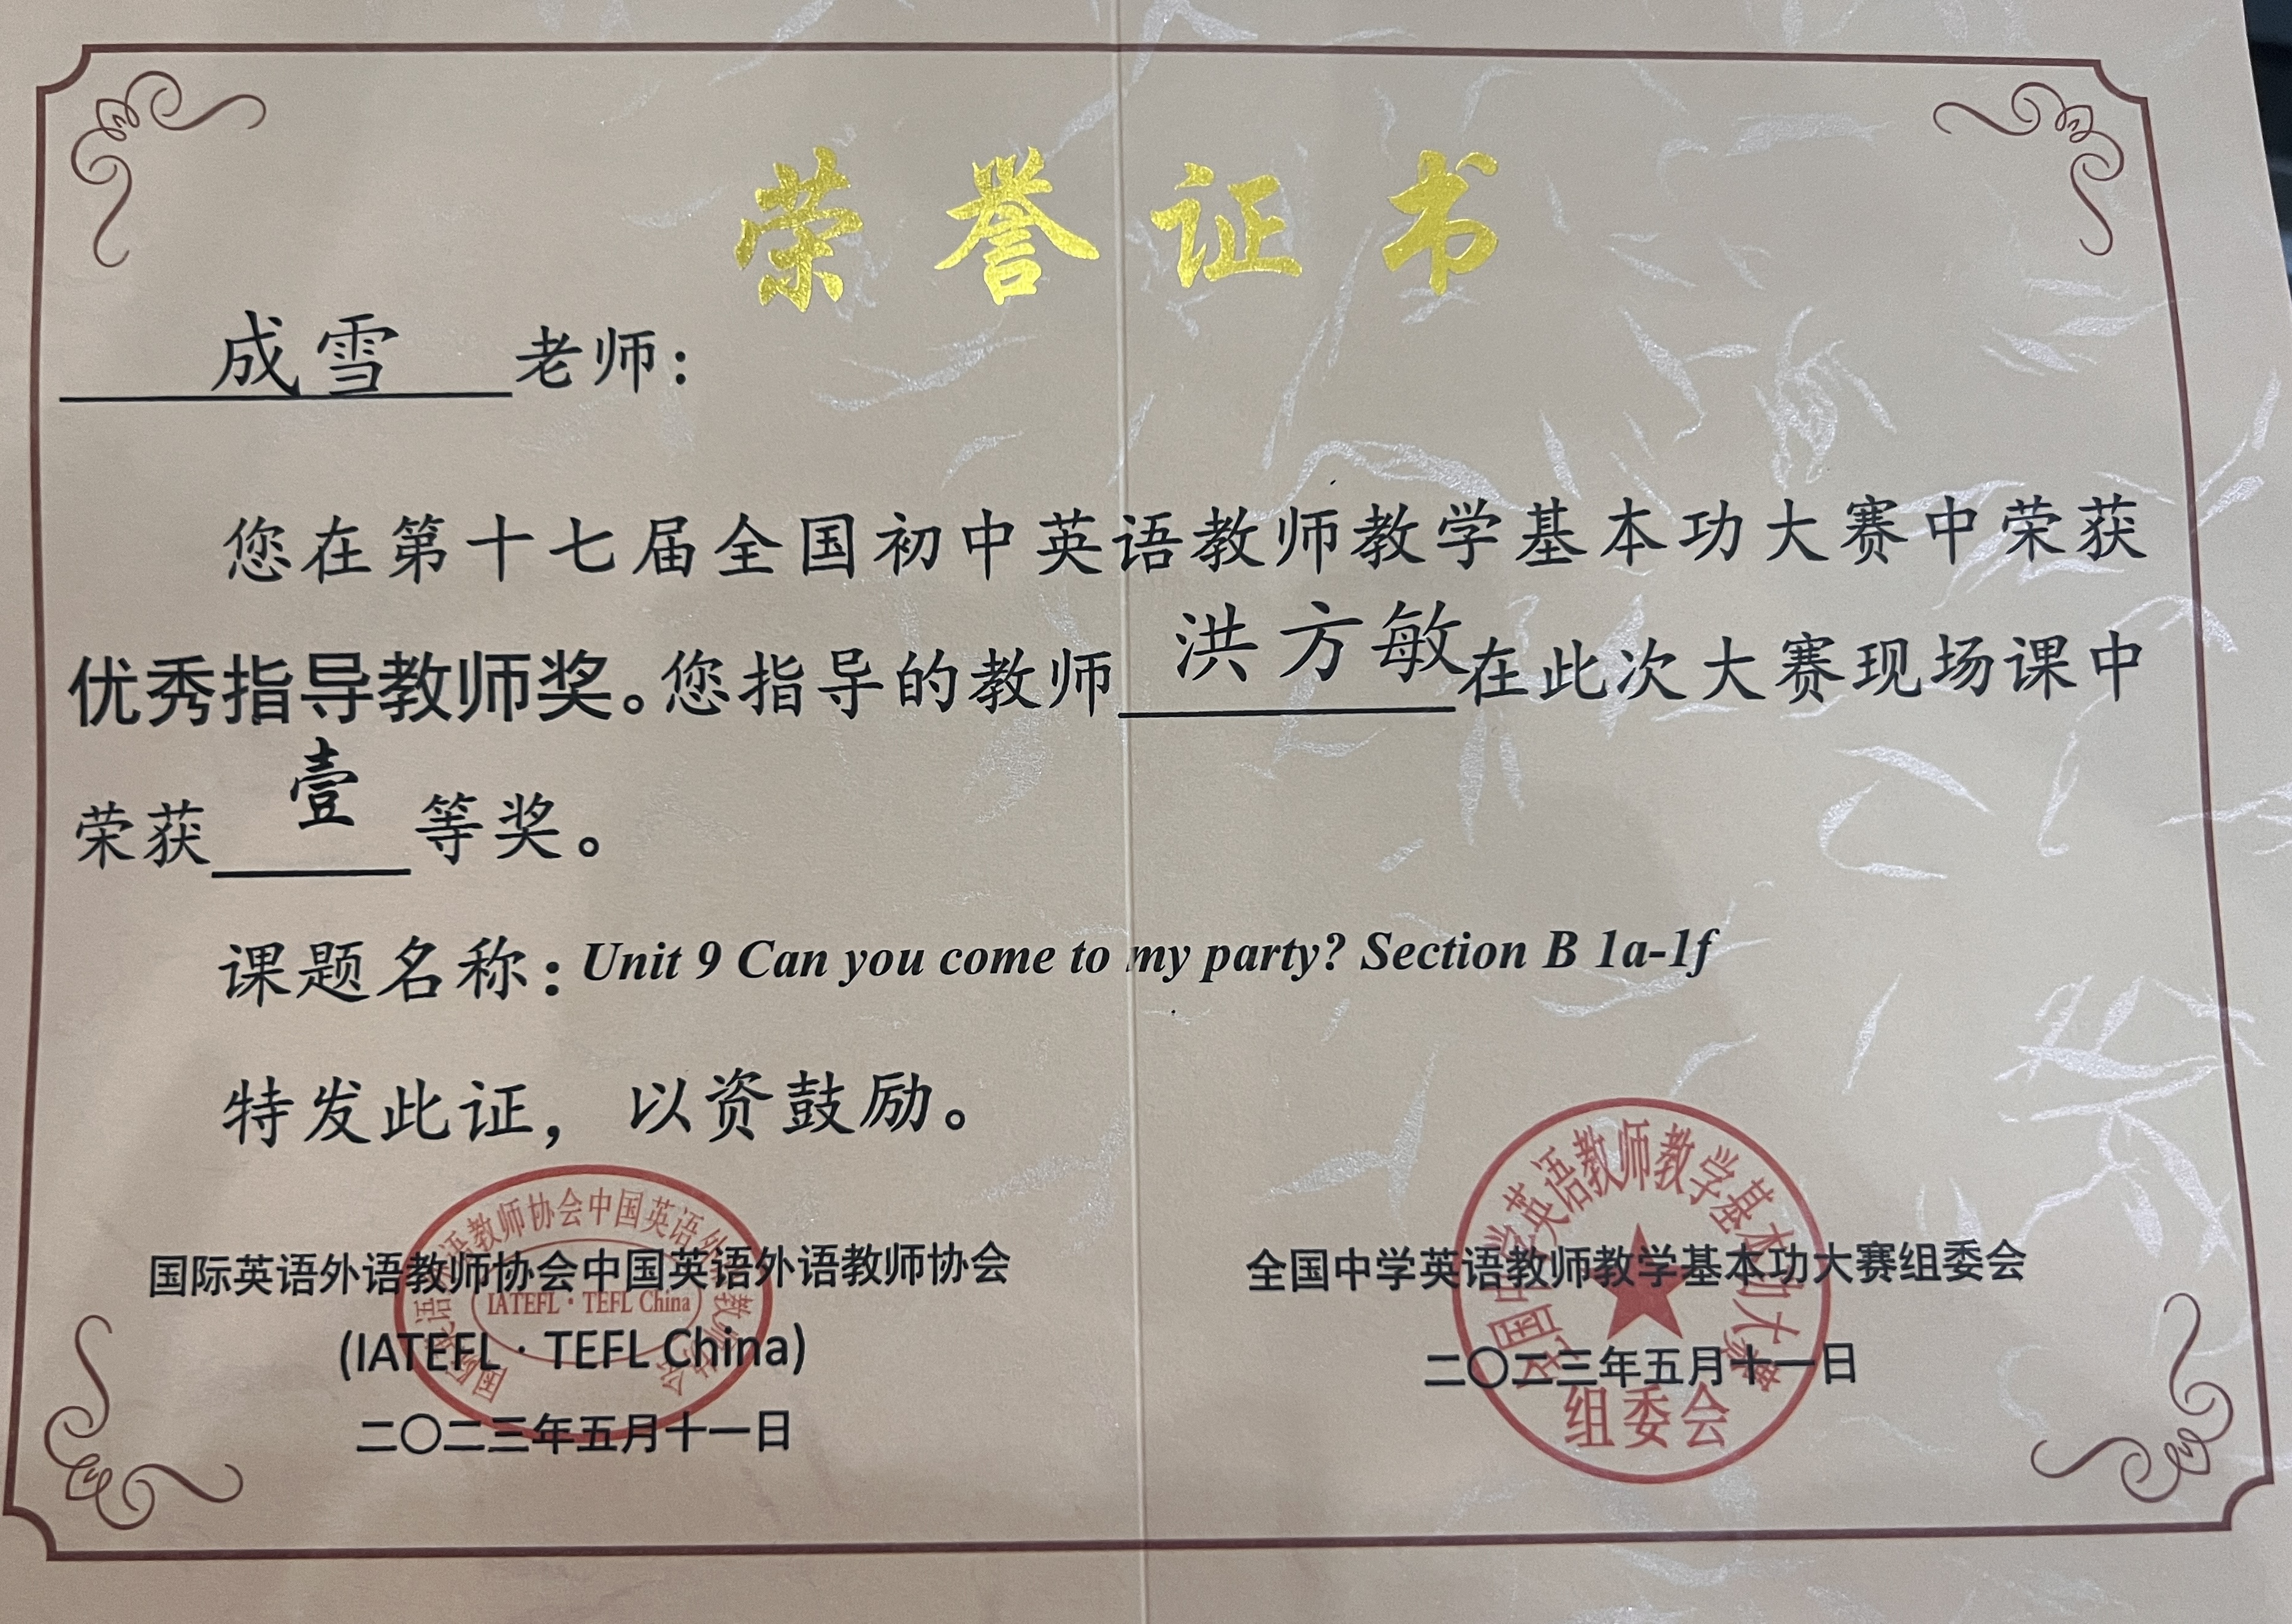 荣誉证书
成雪老师：
您在第十七届全国初中英语教师教学基本功大赛中荣获
优秀指导教师奖。您指导的教师洪方敏在此次大赛现场课中
荣获壹等奖。
课题名称：Unit 9 Can you come to my party? Section B 1a-1f
特发此证，以资鼓励。
国际英语外语教师协会中国英语外语教师协会
(IATEFL · TEFL China)
二〇二三年五月十一日
国际英语外语教师协会中国英语外语教师协会
IATEFL · TEFL China
全国中学英语教师教学基本功大赛组委会
二〇二三年五月十一日
全国中学英语教师教学基本功大赛
组委会